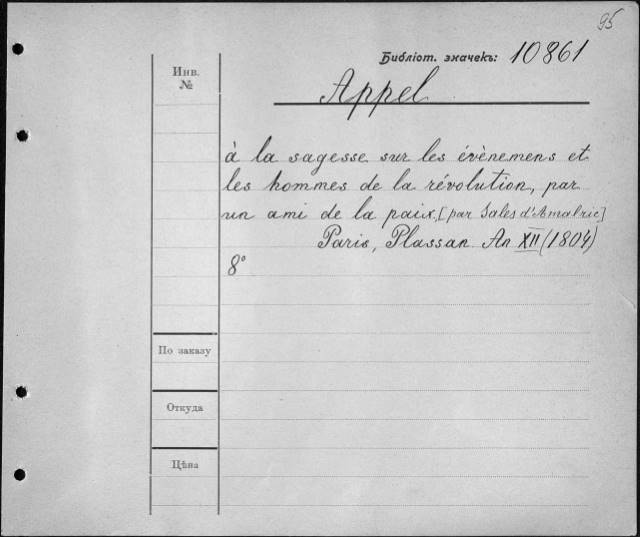 95
Библіот. значекъ: 10861
Инв.
№
Appel
à la sagesse sur les évènemens et
les hommes de la révolution, par
un ami de la paix, [par Sales d'Amalric]
Paris, Plassan. An XII (1804)
8°
По заказу
Откуда
Цѣна